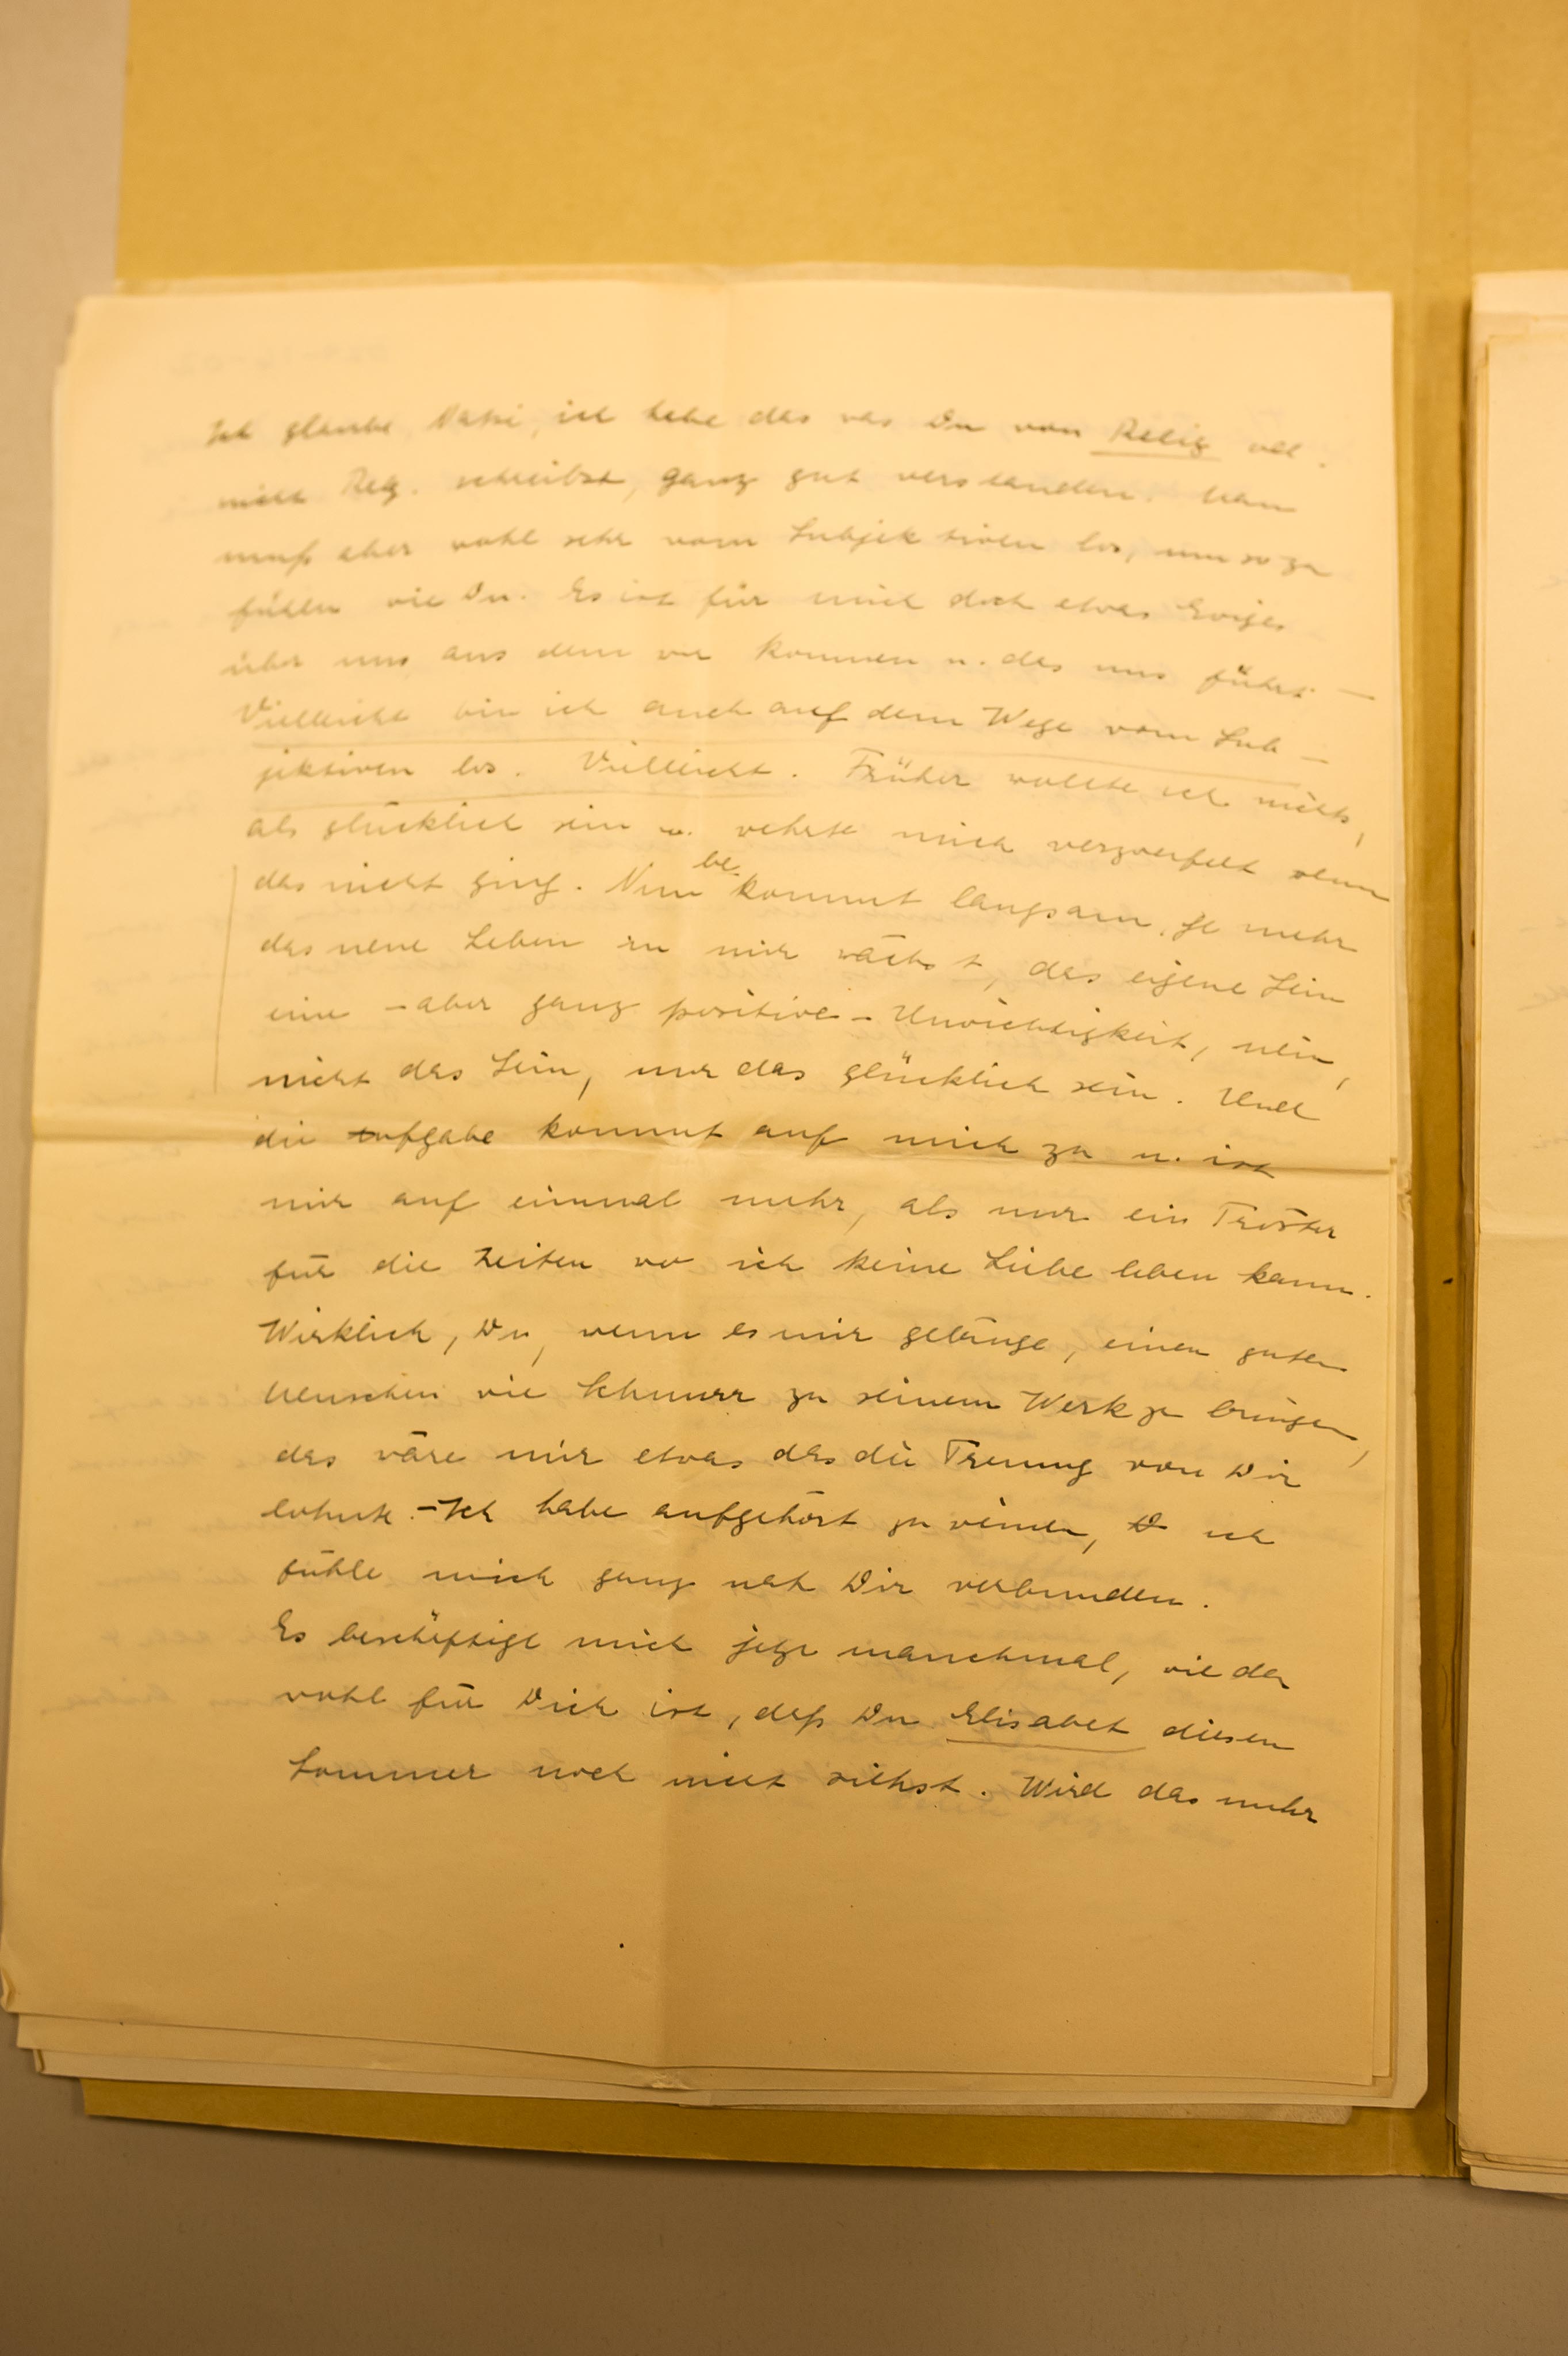 Ich glaube, ich habe das was Du von Relig od.
nicht Rel. schreibst, ganz gut verstanden. Man
muß aber wohl sehr vom Subjektiven los, um so zu
fühlen wie Du. Es ist für mich doch etwas Ewiges
über uns aus dem wir kommen u. das uns führt —
Vielleicht bin ich auch auf dem Wege vom Sub-
jektiven los. Vielleicht. Früher wollte ich nichts,
als glücklich sein u. wehrte mich verzweifelt wenn
das nicht ging. Nun bekommt langsam, je mehr
das neue Leben in mir wächst, das eigene Sein
eine – aber ganz positive – Unwichtigkeit, nein,
nicht das Sein, nur das glücklich sein. Und
die Aufgabe kommt auf mich zu u. ist
mir auf einmal mehr, als nur ein Tröster
für die Zeiten wo ich keine Liebe leben kann.
Wirklich, Du, wenn es mir gelänge, einen guten
Menschen wie Schnurr zu seinem Werk zu bringen,
das wäre mir etwas das die Trennung von Dir
lohnte. – Ich habe aufgehört zu weinen, ich
fühle mich ganz nah Dir verbunden.
Es beschäftigt mich jetzt manchmal, wie das
wohl für Dich ist, daß Du Elisabet diesen
Sommer noch nicht siehst. Wird das mehr